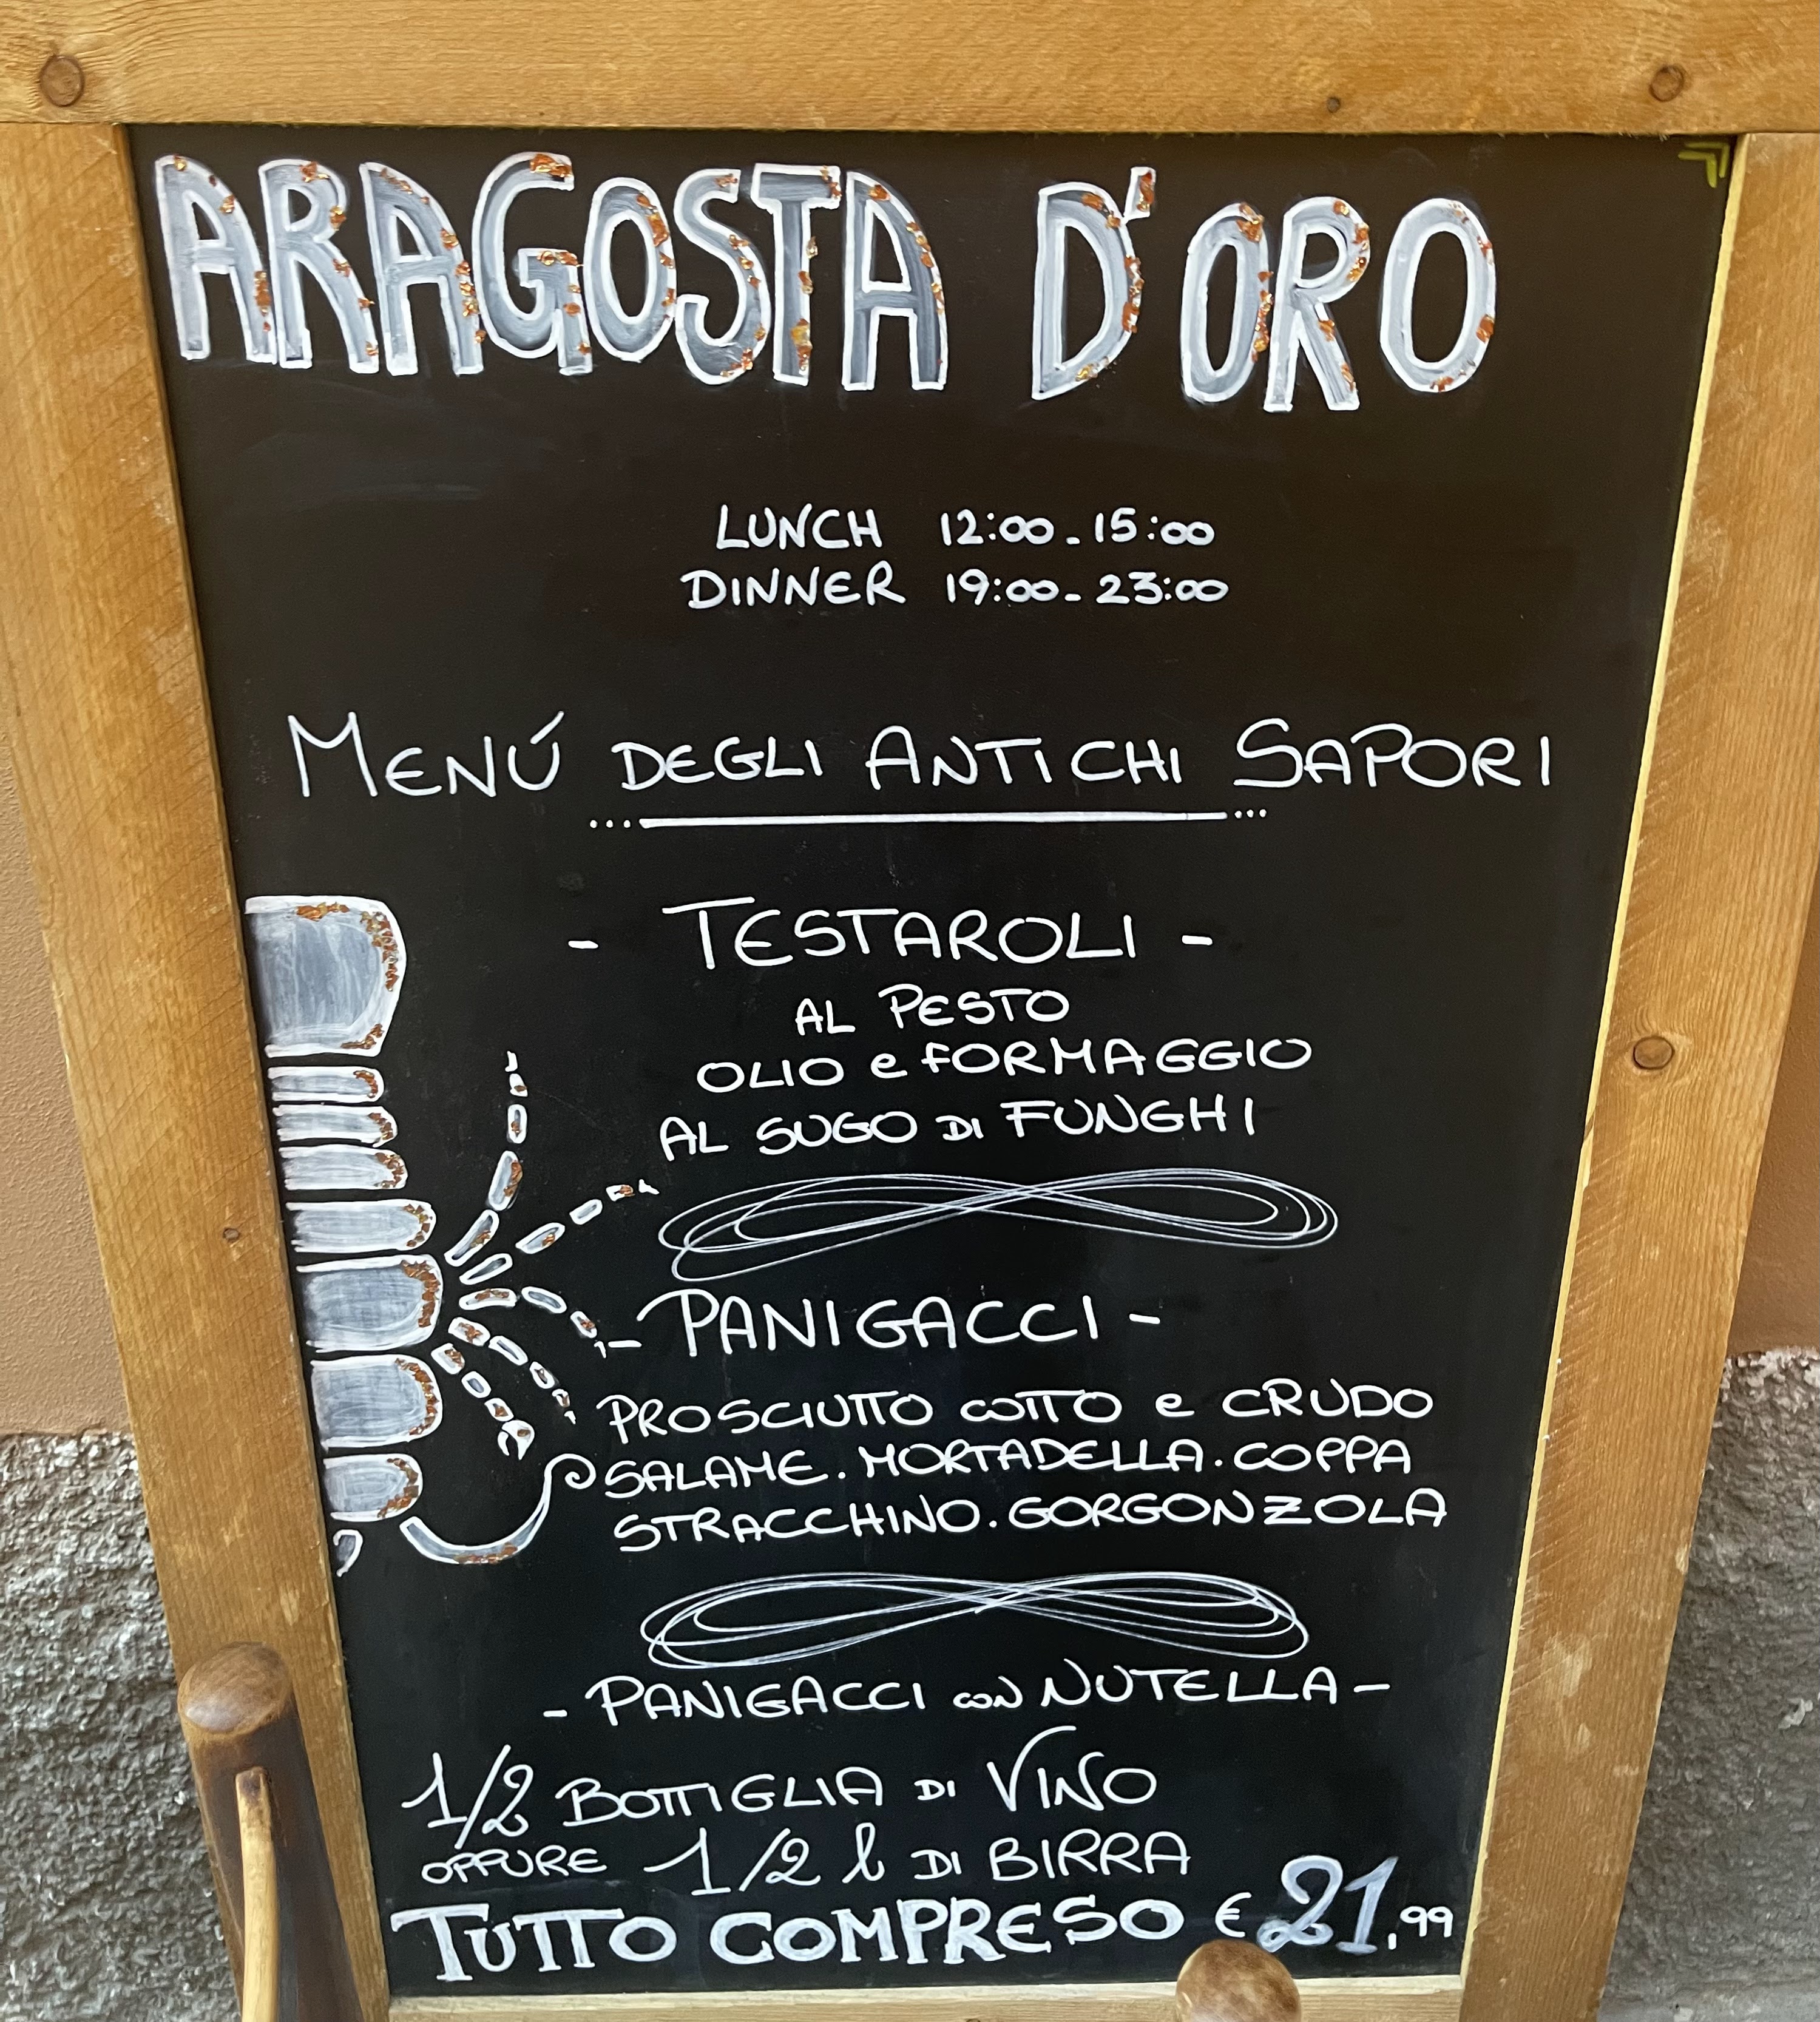 ARAGOSTA D'ORO
LUNCH 12:00 - 15:00
DINNER 19:00 - 23:00
MENÚ DEGLI ANTICHI SAPORI
- TESTAROLI -
AL PESTO
OLIO e FORMAGGIO
AL SUGO DI FUNGHI
- PANIGACCI -
PROSCIUTTO COTTO e CRUDO
SALAME . MORTADELLA . COPPA
STRACCHINO . GORGONZOLA
- PANIGACCI CON NUTELLA -
1/2 BOTTIGLIA DI VINO
OPPURE 1/2 l DI BIRRA
TUTTO COMPRESO € 21,99